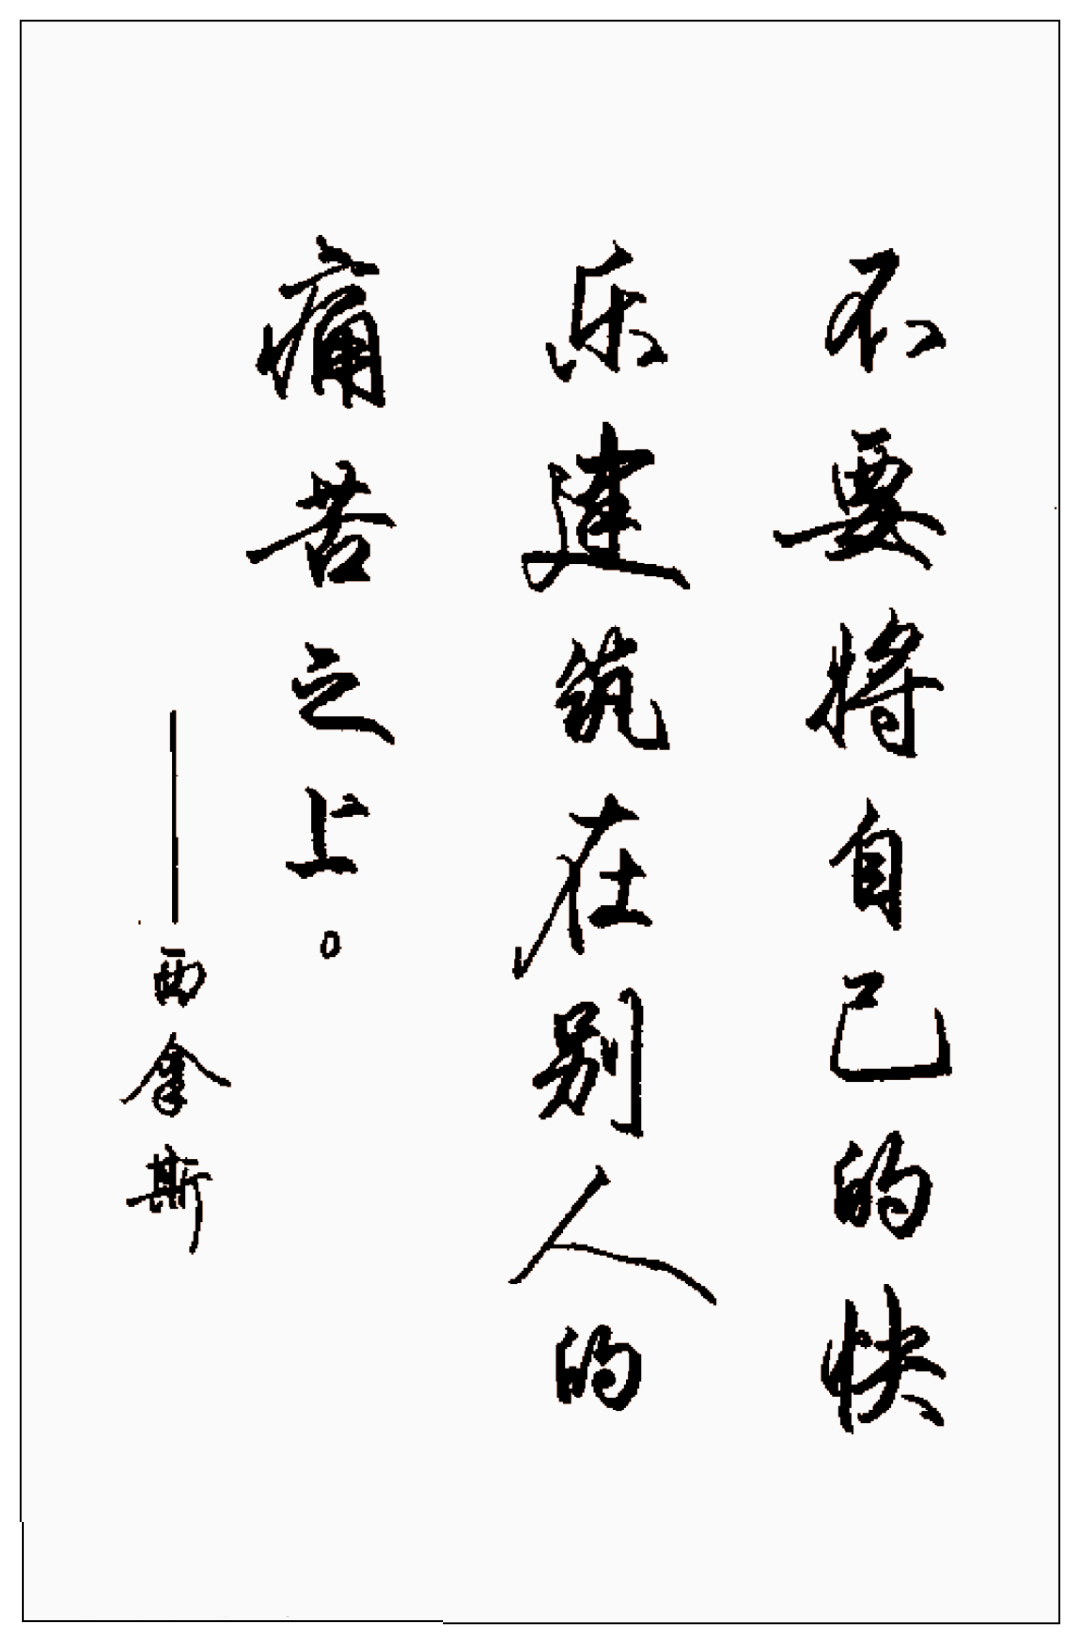 不要将自己的快
乐建筑在别人的
痛苦之上。
——西拿斯